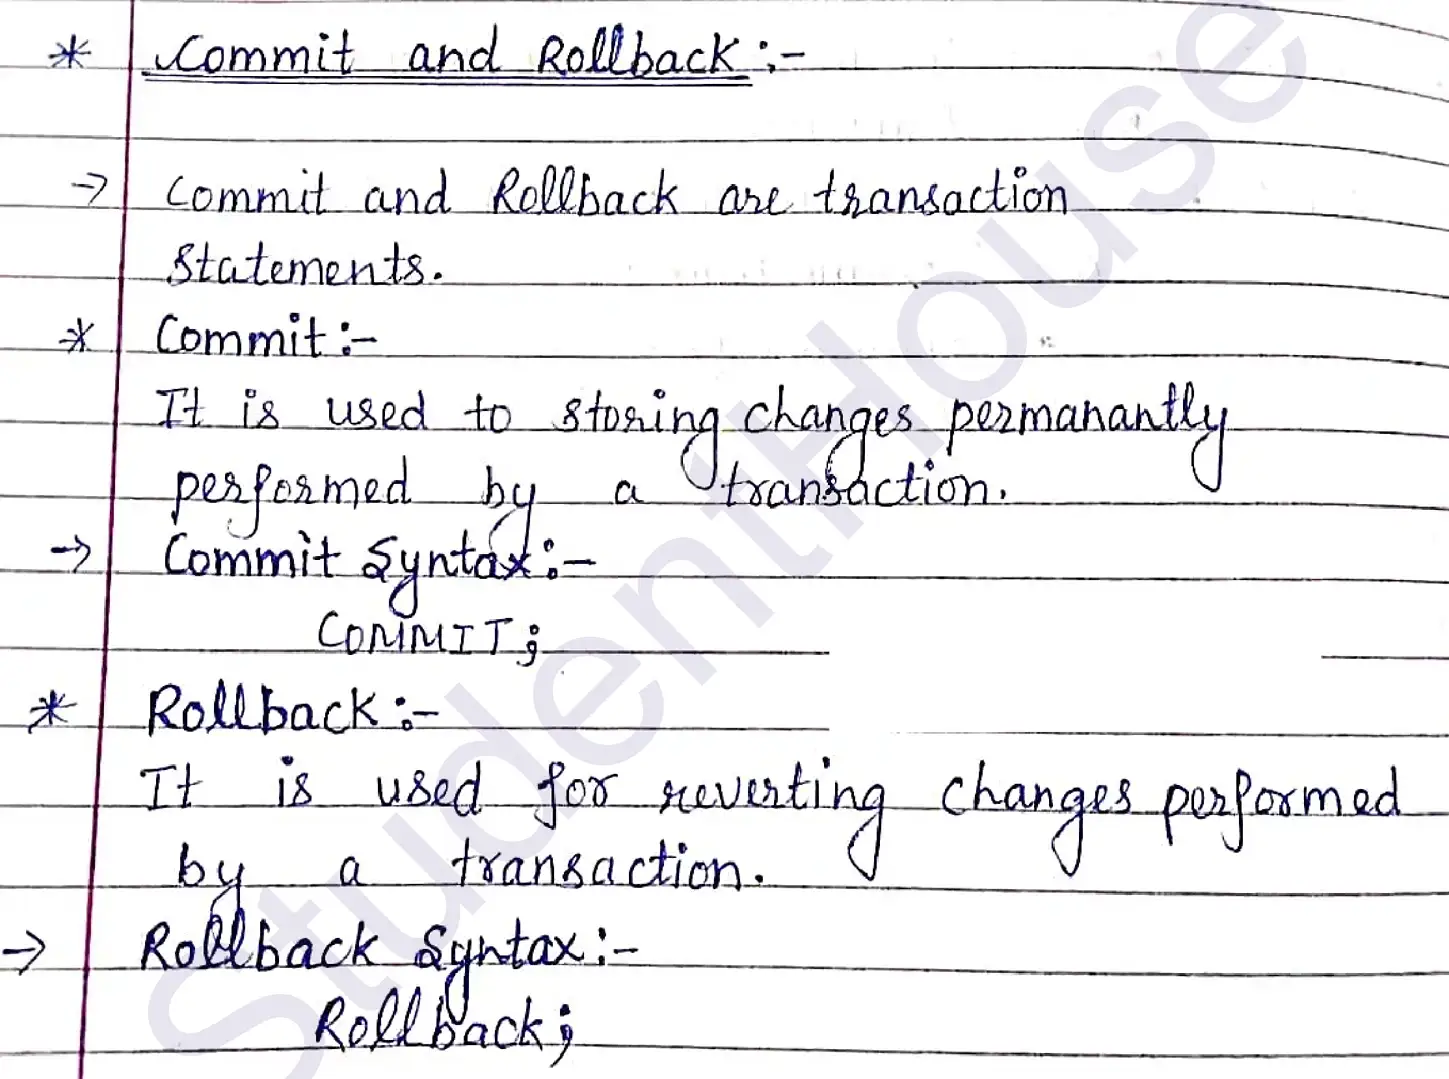 * Commit and Rollback :-
→ Commit and Rollback are transaction
Statements.
* Commit :-
It is used to storing changes permanantly
performed by a transaction.
→ Commit Syntax :-
COMMIT;
* Rollback :-
It is used for reverting changes performed
by a transaction.
→ Rollback Syntax :-
Rollback;
StudentHouse